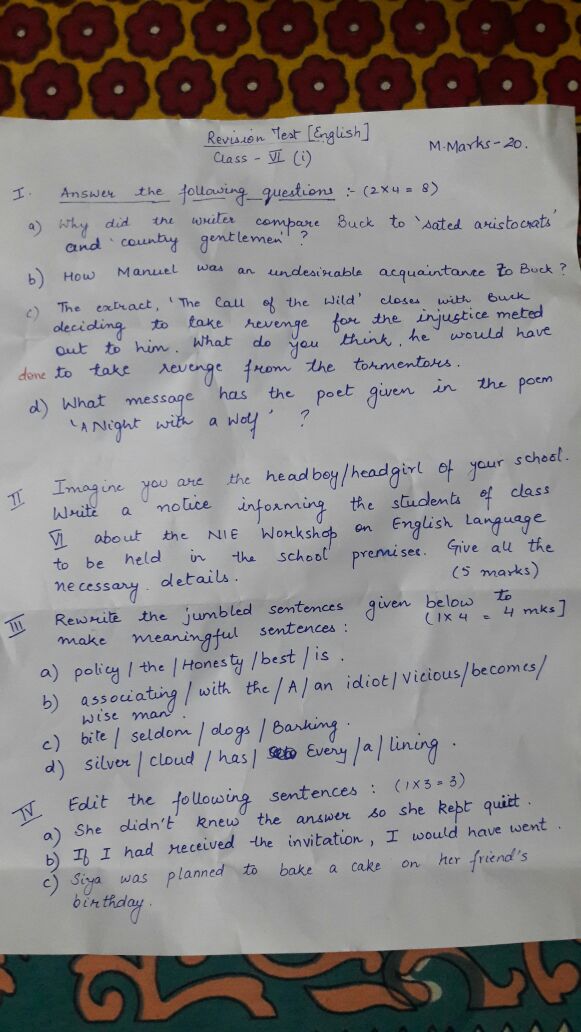 Revision Test [English]
Class - VI (i)
M.Marks - 20.
I. Answer the following questions :- (2x4 = 8)
a) Why did the writer compare Buck to 'sated aristocrats'
and 'country gentlemen'?
b) How Manuel was an undesirable acquaintance to Buck?
c) The extract, 'The Call of the Wild' closes with Buck
deciding to take revenge for the injustice meted
out to him. What do you think, he would have
done to take revenge from the tormentors.
d) What message has the poet given in the poem
'A Night with a Wolf' ?
II Imagine you are the headboy/headgirl of your school.
Write a notice informing the students of class
VI about the NIE Workshop on English Language
to be held in the school premises. Give all the
necessary details. (5 marks)
III Rewrite the jumbled sentences given below to
make meaningful sentences : (1x4 = 4 mks]
a) policy / the / Honesty / best / is .
b) associating / with the / A / an idiot / Vicious / becomes /
wise man .
c) bite / seldom / dogs / Barking .
d) silver / cloud / has / Every / a / lining .
IV Edit the following sentences : (1x3 = 3)
a) She didn't knew the answer so she kept quiet .
b) If I had received the invitation, I would have went .
c) Siya was planned to bake a cake on her friend's
birthday.